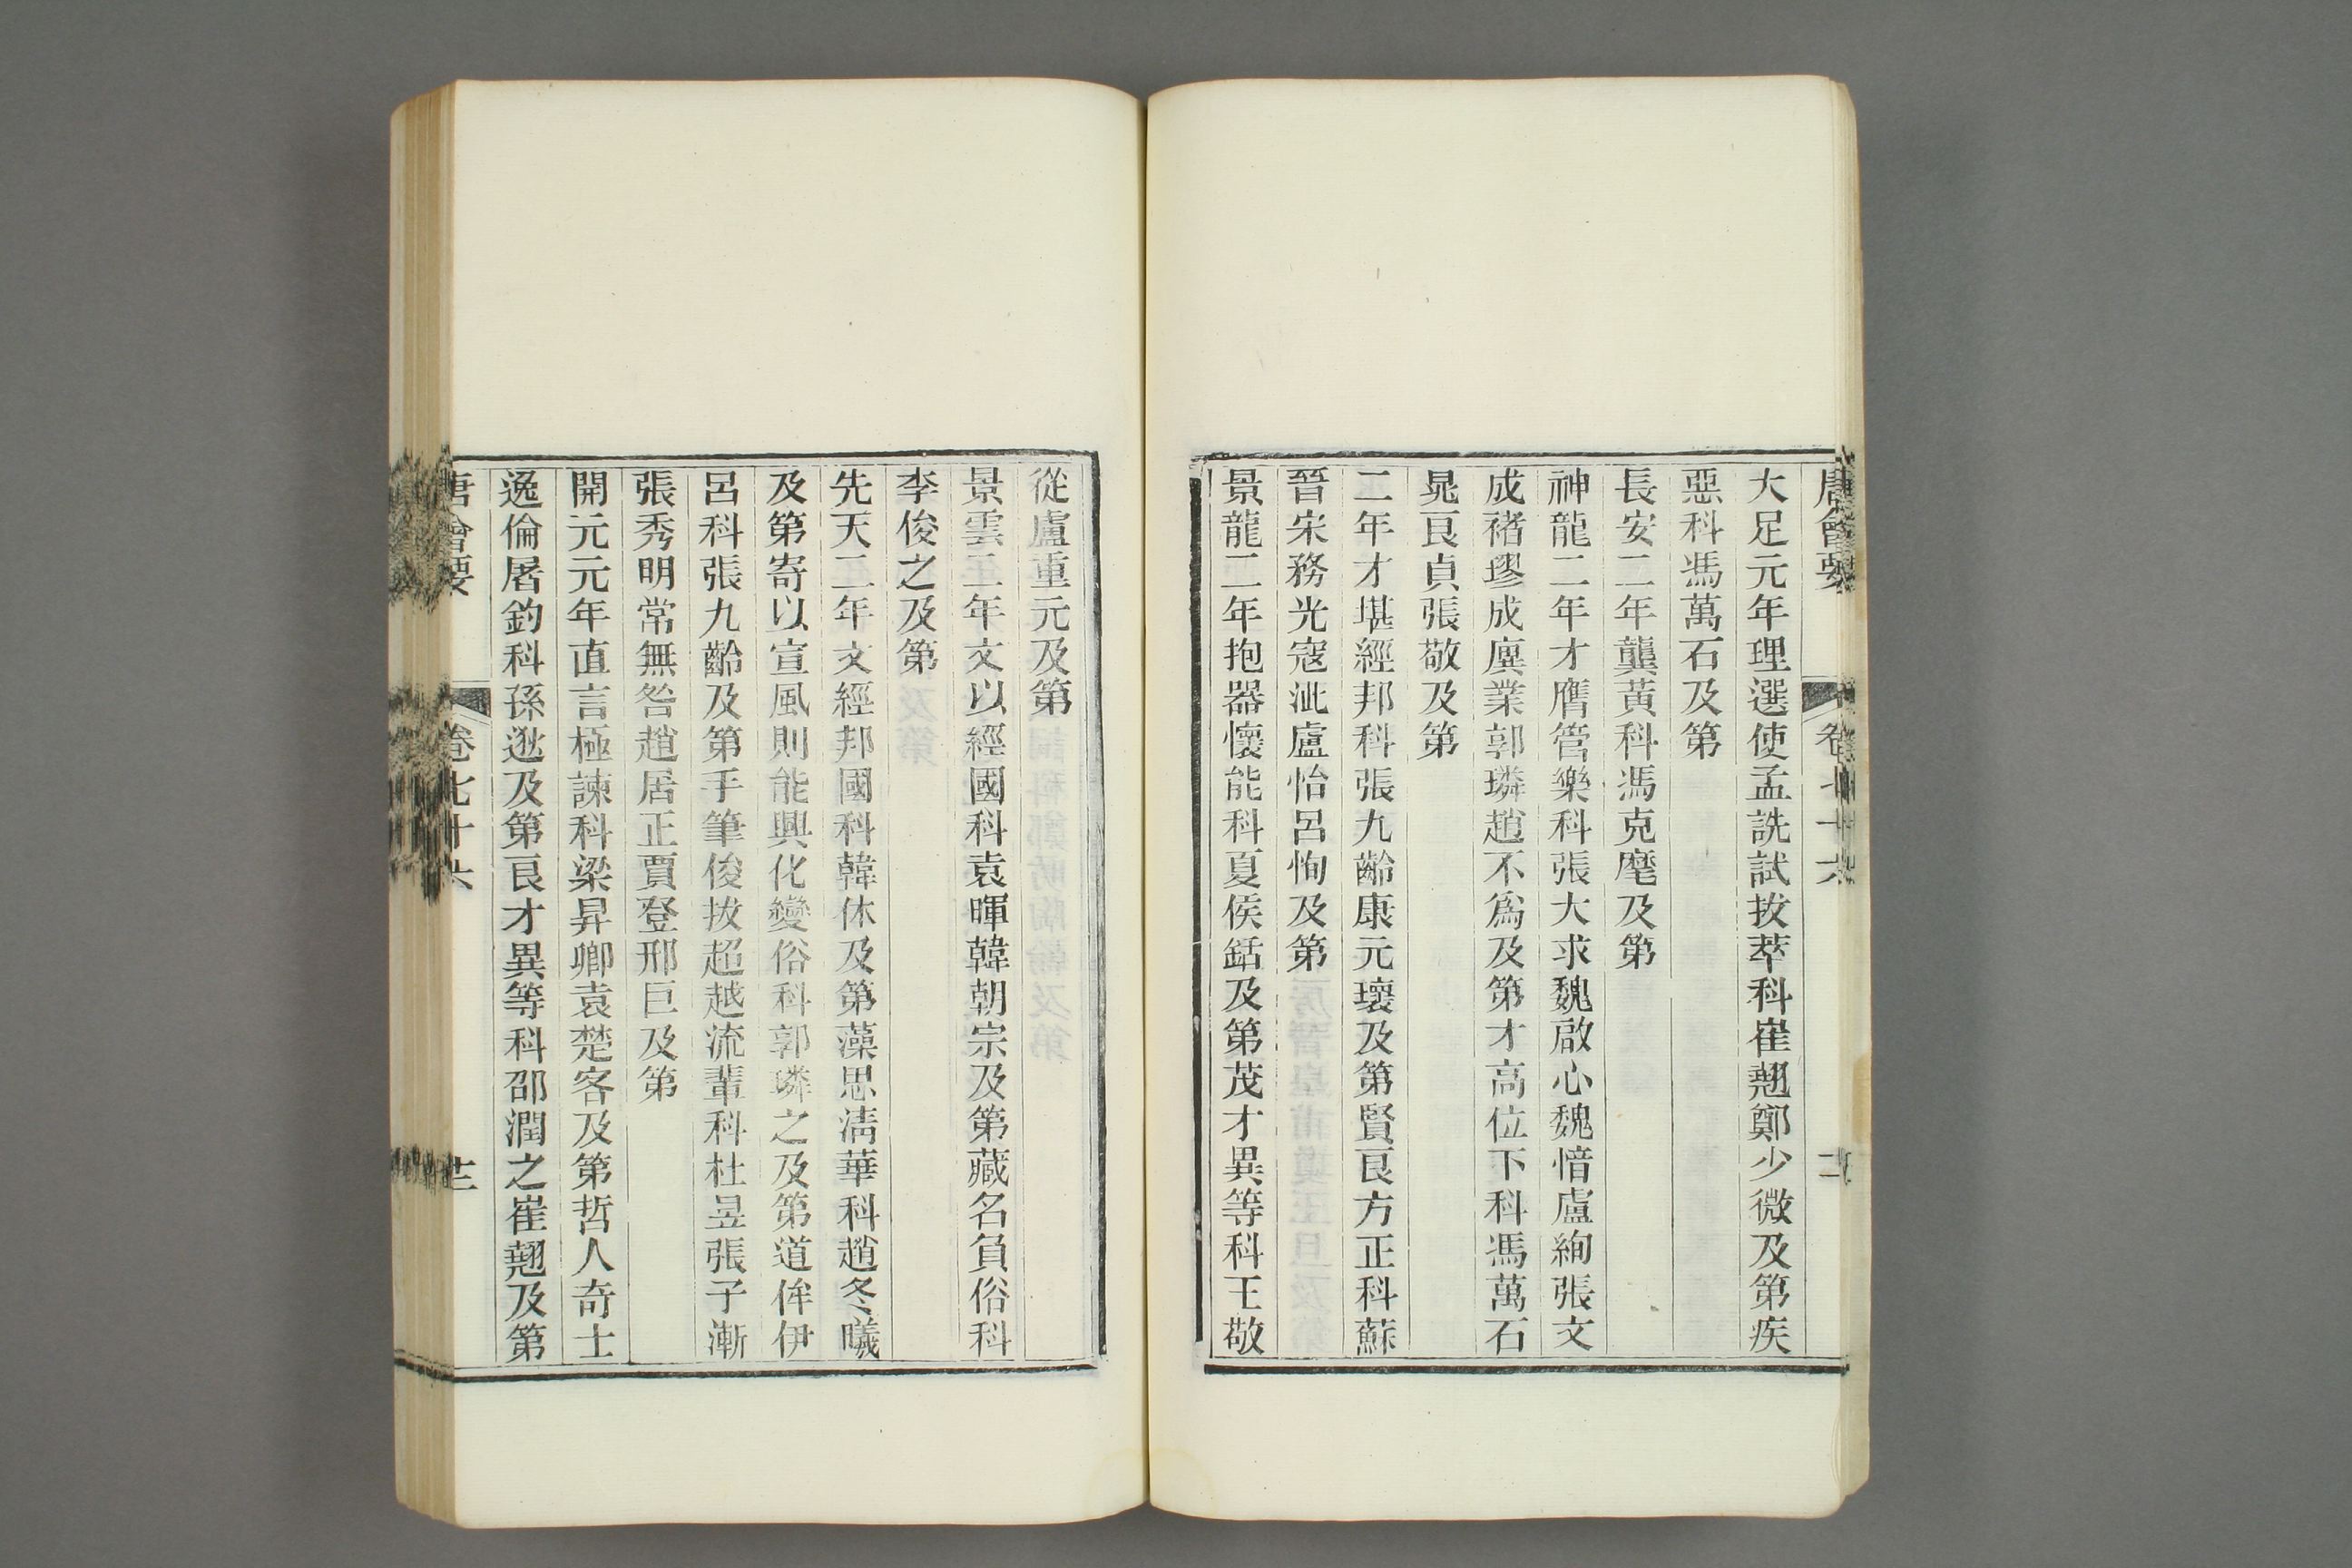 唐會要 卷七十六
大足元年理選使孟詵試拔萃科崔翹鄭少微及第疾
惡科馮萬石及第
長安二年龔黃科馮克麾及第
神龍二年才膺管樂科張大求魏啟心魏愔盧絢張文
成褚璆成廙業郭璘趙不爲及第才高位下科馮萬石
晁良貞張敬及第
二年才堪經邦科張九齡康元瓌及第賢良方正科蘇
晉宋務光寇泚盧怡呂恂及第
景龍二年抱器懷能科夏侯銛及第茂才異等科王敬
從盧重元及第
景雲二年文以經國科袁暉韓朝宗及第藏名負俗科
李俊之及第
先天二年文經邦國科韓休及第藻思清華科趙冬曦
及第寄以宣風則能興化變俗科郭璘之及第道侔伊
呂科張九齡及第手筆俊拔超越流輩科杜昱張子漸
張秀明常無咎趙居正賈登邢巨及第
開元元年直言極諫科梁昇卿袁楚客及第哲人奇士
逸倫屠釣科孫逖及第良才異等科邵潤之崔翹及第
唐會要 卷七十六